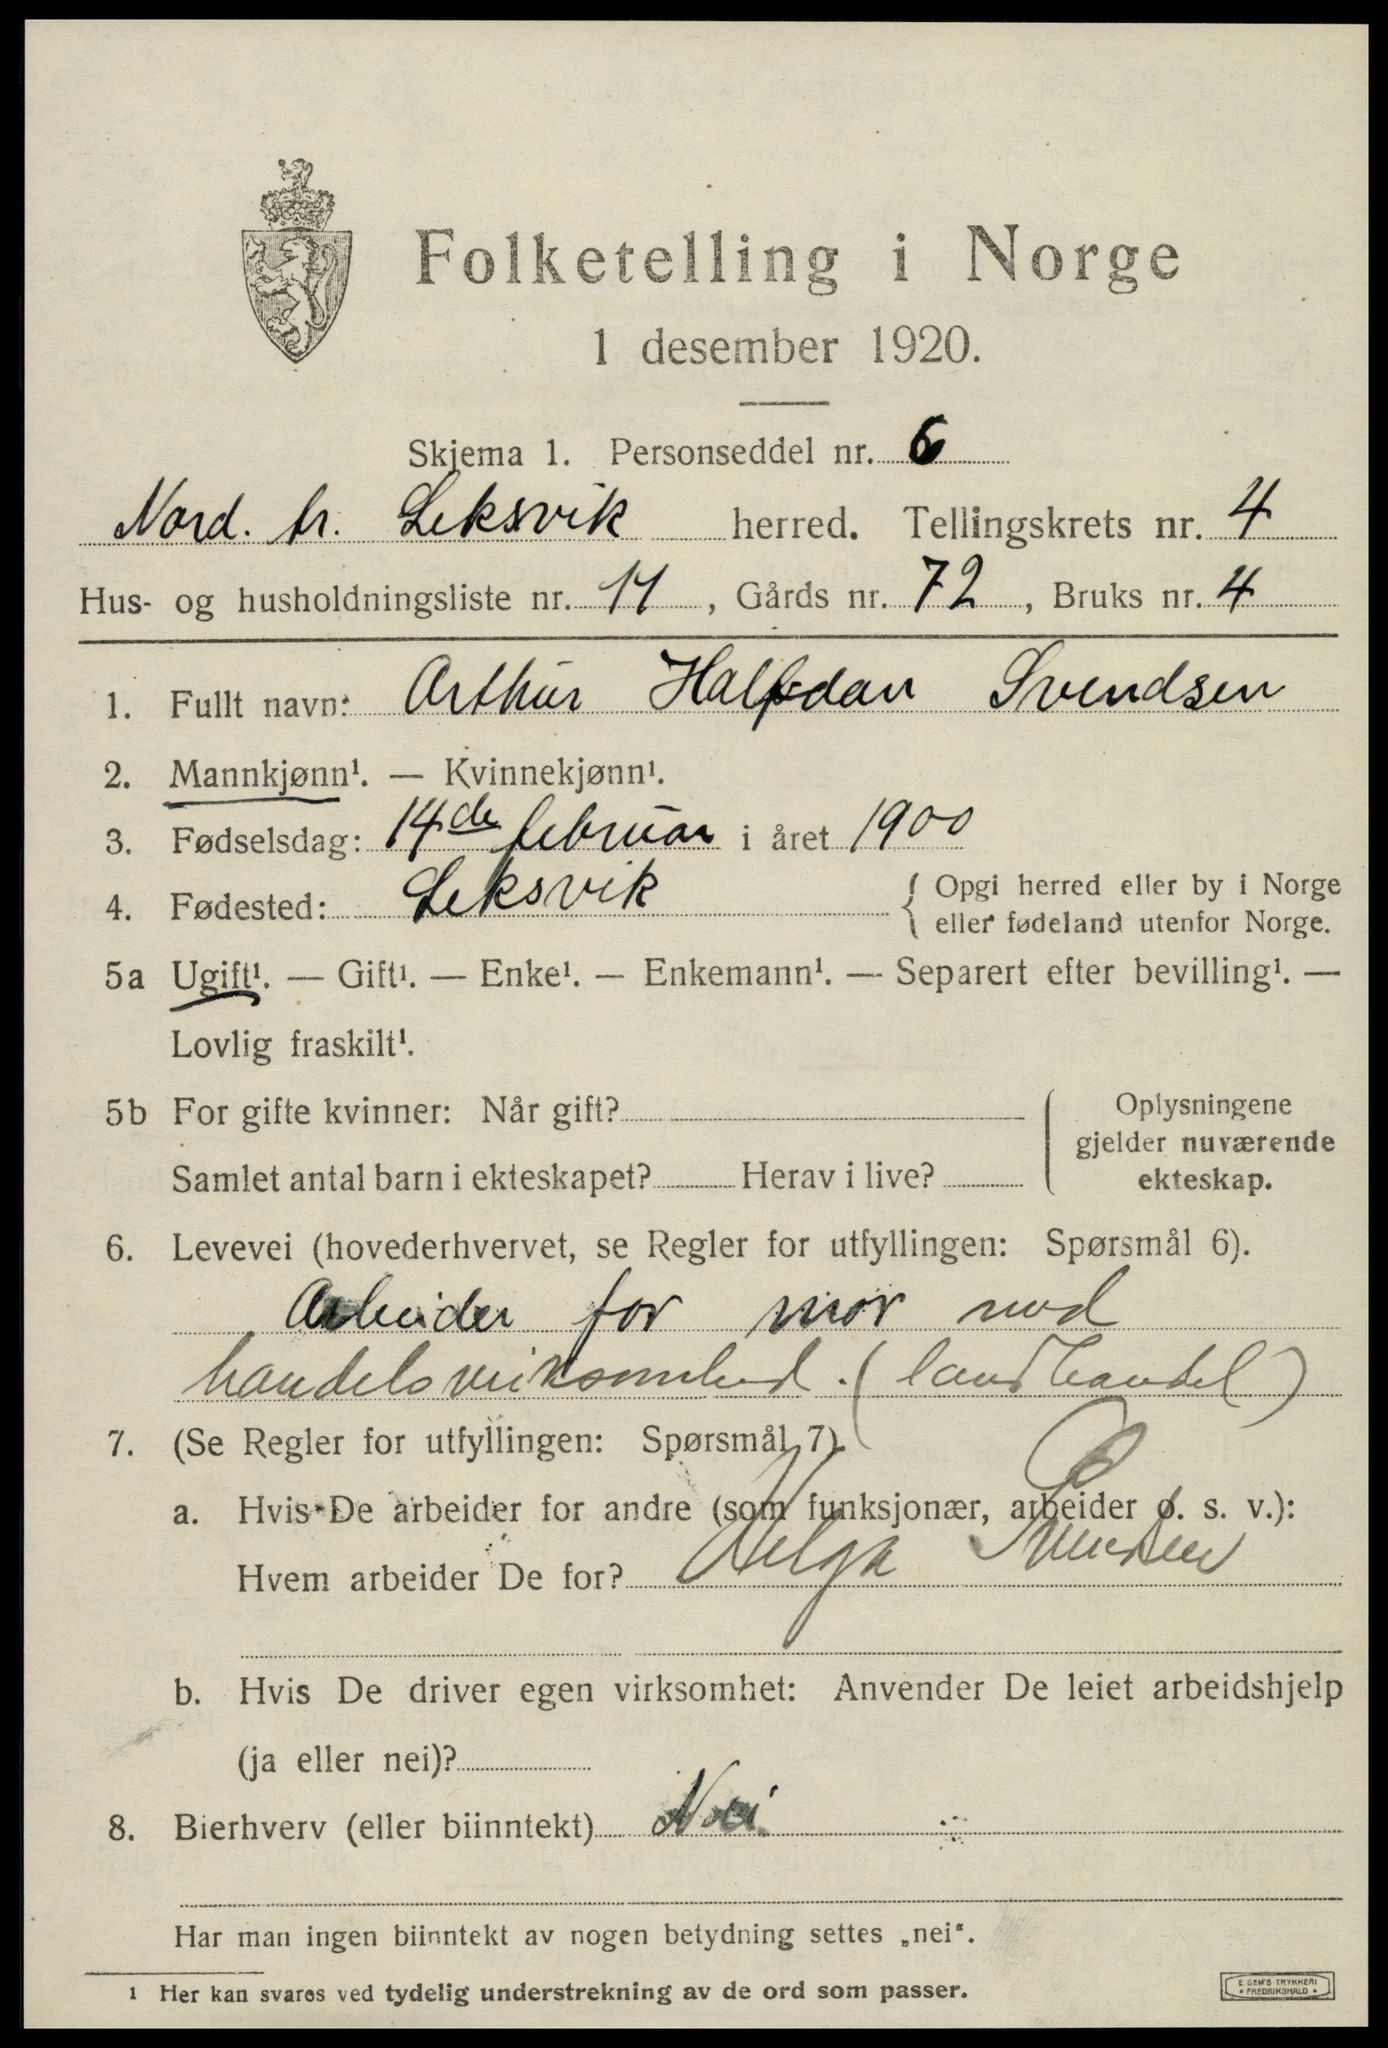 Folketelling i Norge
1 desember 1920.
Skjema 1. Personseddel nr. 6
Nord. tr. Leksvik herred. Tellingskrets nr. 4
Hus- og husholdningsliste nr. 14, Gårds nr. 72, Bruks nr. 4
1. Fullt navn: Arthur Halfdan Svendsen
2. Mannkjønn¹. — Kvinnekjønn¹.
3. Fødselsdag: 14de februar i året 1900
4. Fødested: Leksvik { Opgi herred eller by i Norge
eller fødeland utenfor Norge.
5a Ugift¹. — Gift¹. — Enke¹. — Enkemann¹. — Separert efter bevilling¹. —
Lovlig fraskilt¹.
5b For gifte kvinner: Når gift? { Oplysningene
gjelder nuværende
Samlet antal barn i ekteskapet? Herav i live? ekteskap.
6. Levevei (hovederhvervet, se Regler for utfyllingen: Spørsmål 6).
Arbeider for mor med
handelsvirksomhed. (landhandel)
7. (Se Regler for utfyllingen: Spørsmål 7)
a. Hvis De arbeider for andre (som funksjonær, arbeider o. s. v.):
Hvem arbeider De for? Helga Svendsen
b. Hvis De driver egen virksomhet: Anvender De leiet arbeidshjelp
(ja eller nei)?
8. Bierhverv (eller biinntekt) Nei
Har man ingen biinntekt av nogen betydning settes „nei“.
1 Her kan svares ved tydelig understrekning av de ord som passer.
E. SEM'S TRYKKERI
* FREDRIKSHALD *